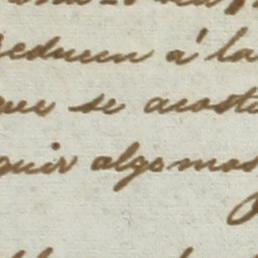 reducen á la
que se acosta
guir algo mas